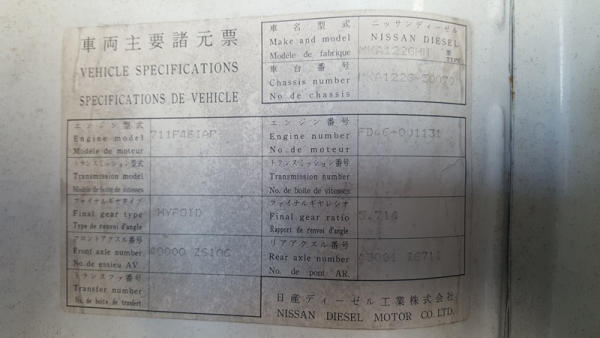 車両主要諸元票
VEHICLE SPECIFICATIONS
SPECIFICATIONS DE VEHICLE
車名型式
Make and model
Modèle de fabrique
ニッサンディーゼル
NISSAN DIESEL
型
TYPE
車台番号
Chassis number
No. de chassis
エンジン型式
Engine model
Modèle de moteur
エンジン番号
Engine number
No. de moteur
FD46-001131
トランスミッション型式
Transmission model
Modèle de boite de vitesses
トランスミッション番号
Transmission number
No. de boite de vitesses
ファイナルギヤタイプ
Final gear type
Type de renvoi d'angle
HYPOID
ファイナルギヤレシオ
Final gear ratio
Rapport de renvoi d'angle
5.714
フロントアクスル番号
Front axle number
No. de essieu AV.
40000 Z5106
リアアクスル番号
Rear axle number
No. de pont AR.
トランスファ番号
Transfer number
No. de boite de transfert
日産ディーゼル工業株式会社
NISSAN DIESEL MOTOR CO. LTD.